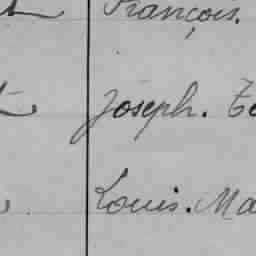 François.
Joseph.
Louis. Ma